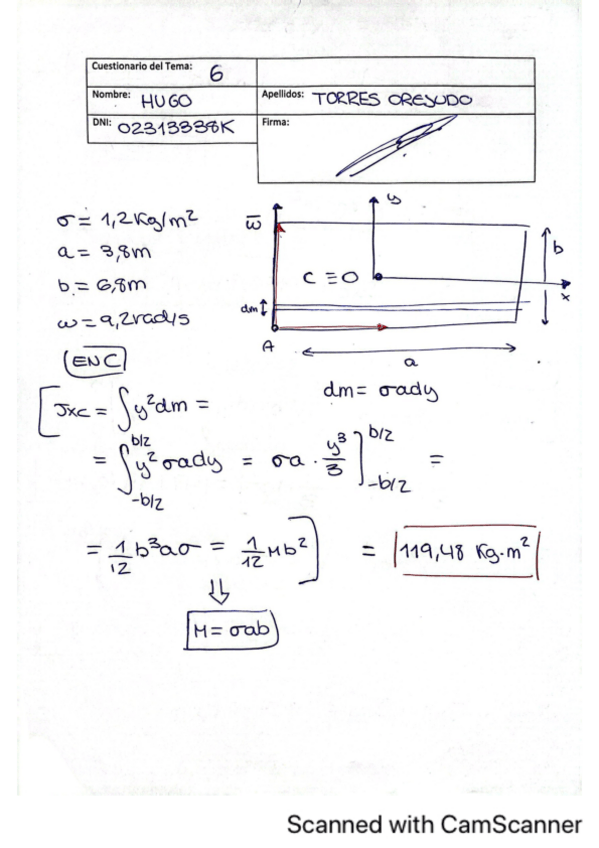 Cuestionario del Tema: 6
Nombre: HUGO
Apellidos: TORRES OREJUDO
DNI: 02313338K
Firma:
σ = 1,2 Kg/m²
a = 3,8m
b = 6,8m
ω = 9,2rad/s
ω̅
y
C ≡ O
x
b
dm
A
a
EN C
Jxc = ∫y²dm =
dm = σady
= ∫_{-b/2}^{b/2} y² σady = σa · y³/3 ]_{-b/2}^{b/2} =
= 1/12 b³aσ = 1/12 Mb² ] = 119,48 Kg·m²
⇓
M = σab
Scanned with CamScanner